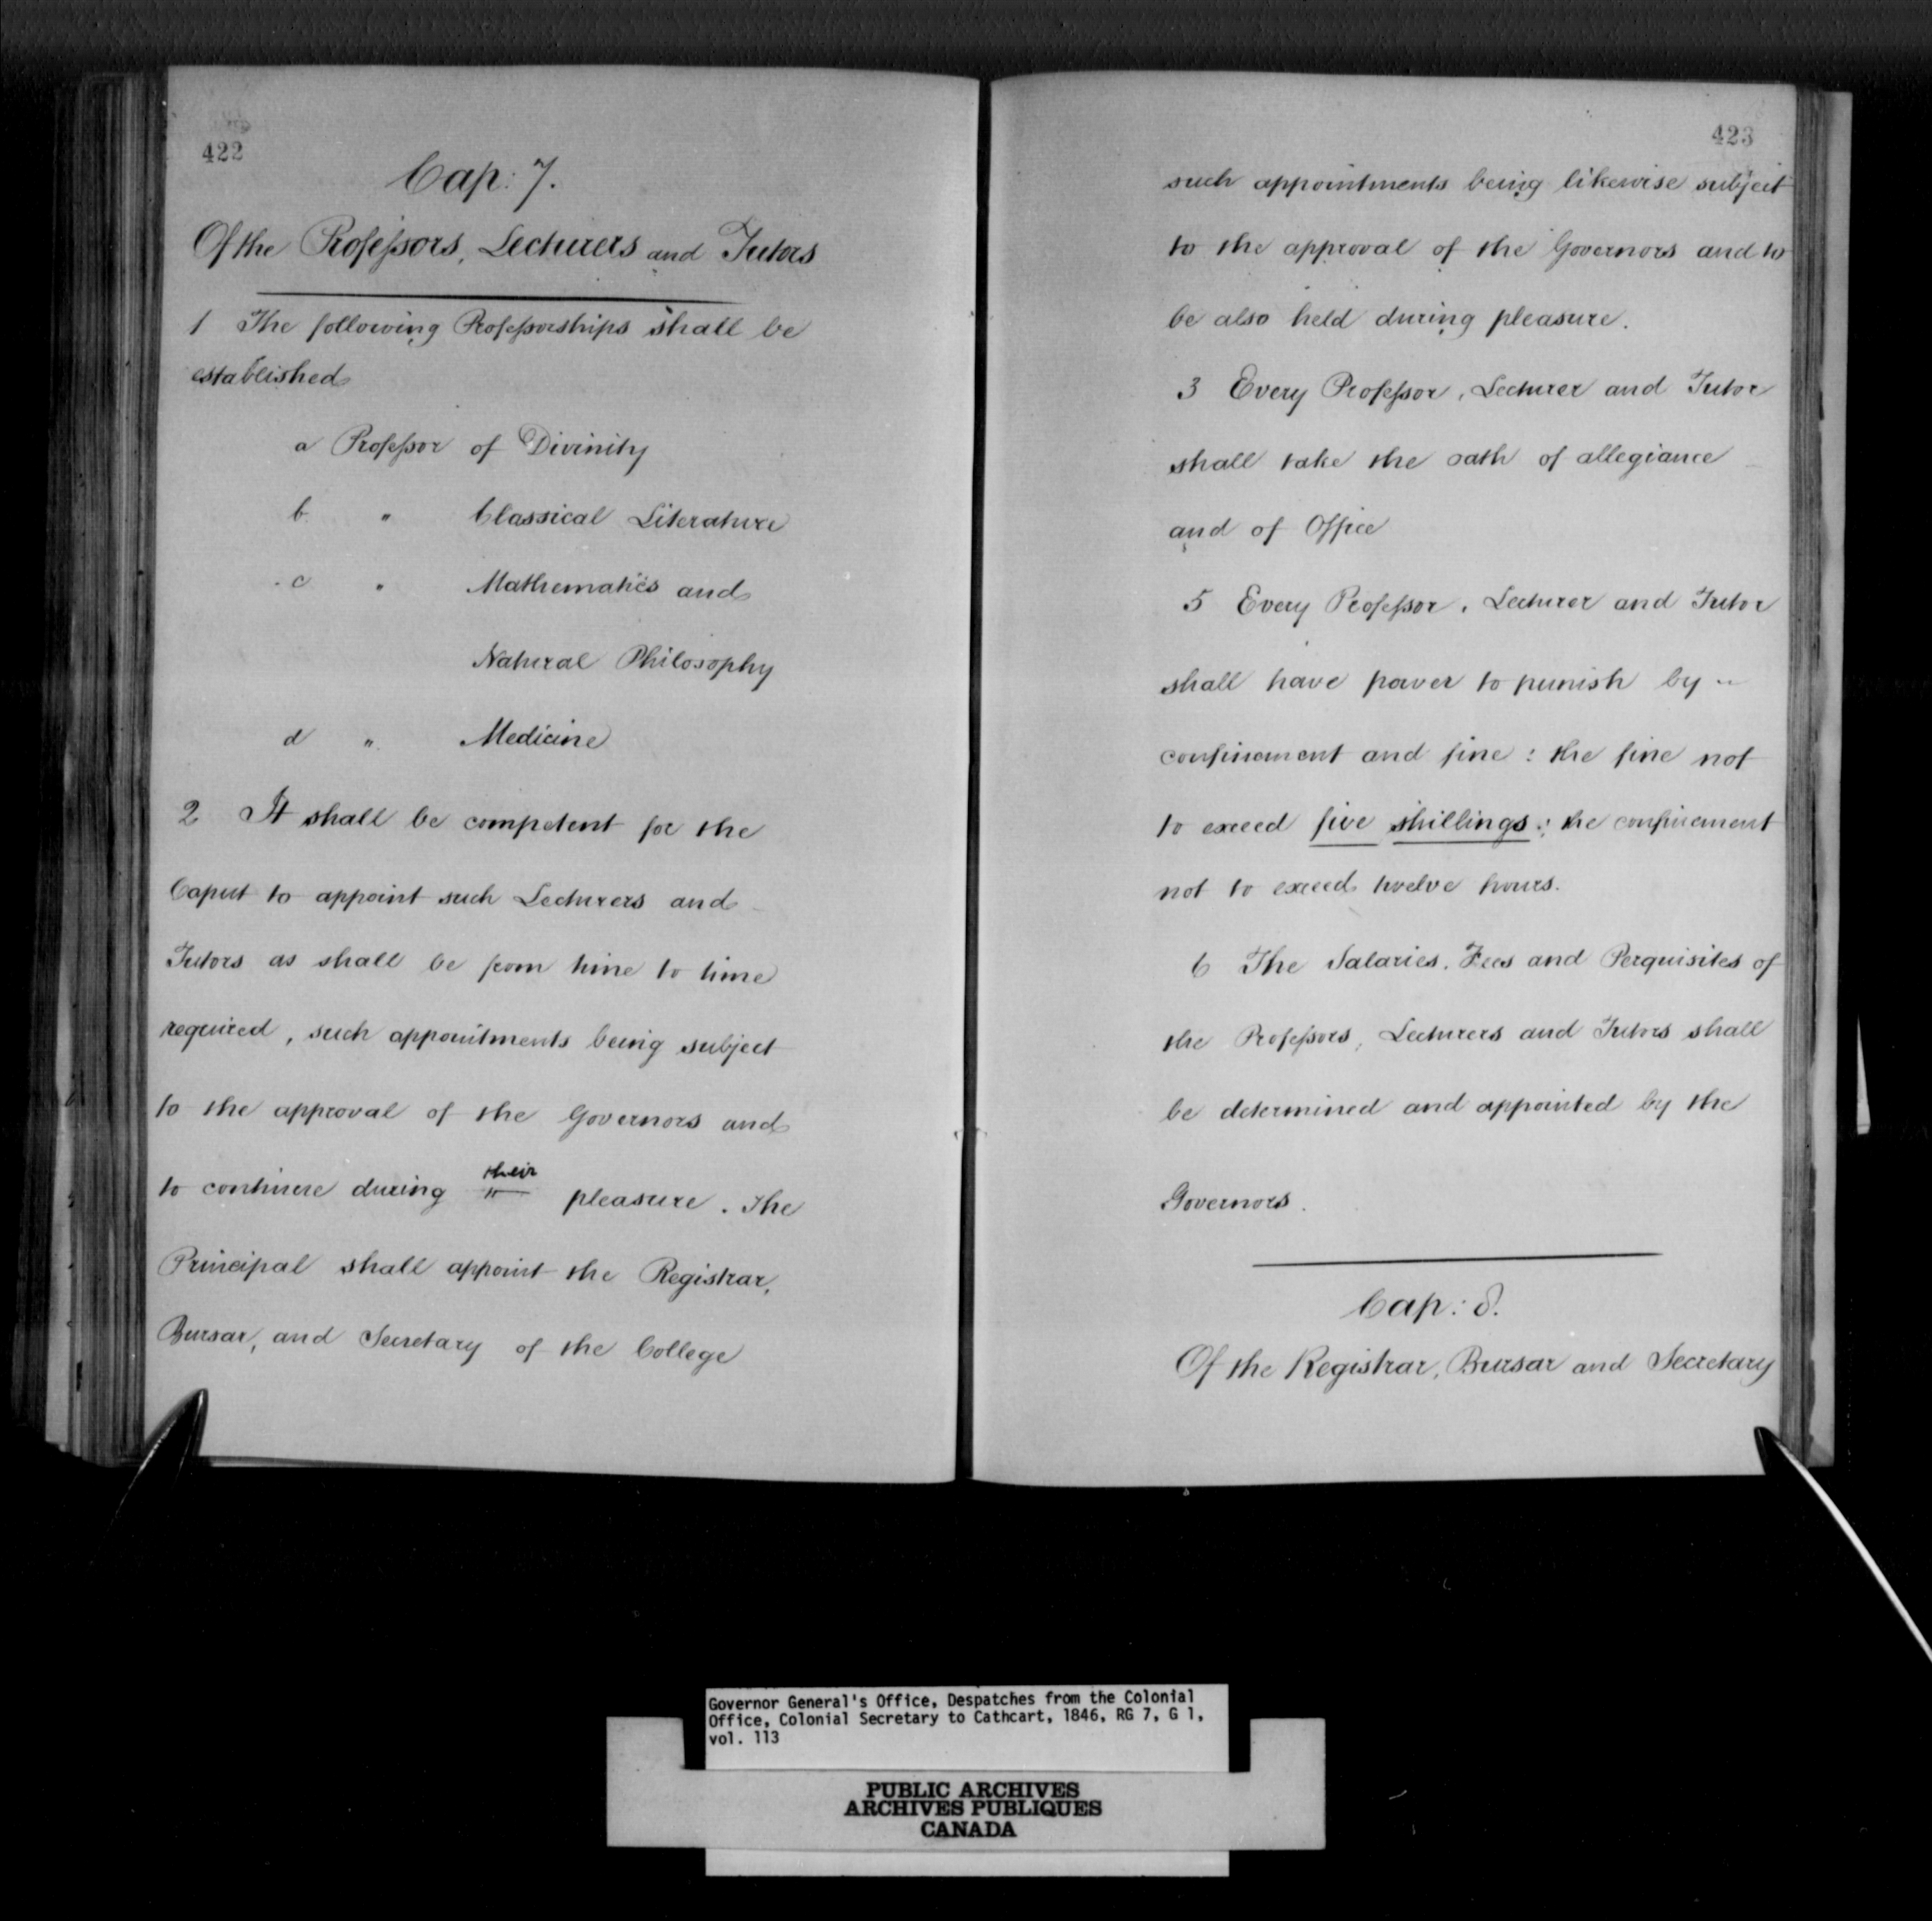 422
Cap: 7.
Of the Professors, Lecturers and Tutors
1 The following Professorships shall be
established
a Professor of Divinity
b " Classical Literature
c " Mathematics and
Natural Philosophy
d " Medicine
2 It shall be competent for the
Caput to appoint such Lecturers and
Tutors as shall be from time to time
required, such appointments being subject
to the approval of the Governors and
to continue during their pleasure. The
Principal shall appoint the Registrar,
Bursar, and Secretary of the College
423
such appointments being likewise subject
to the approval of the Governors and to
be also held during pleasure.
3 Every Professor, Lecturer and Tutor
shall take the oath of allegiance
and of Office
5 Every Professor, Lecturer and Tutor
shall have power to punish by
confinement and fine: the fine not
to exceed five shillings: the confinement
not to exceed twelve hours.
6 The Salaries, Fees and Perquisites of
the Professors, Lecturers and Tutors shall
be determined and appointed by the
Governors.
Cap: 8.
Of the Registrar, Bursar and Secretary
Governor General's Office, Despatches from the Colonial
Office, Colonial Secretary to Cathcart, 1846, RG 7, G 1,
vol. 113
PUBLIC ARCHIVES
ARCHIVES PUBLIQUES
CANADA